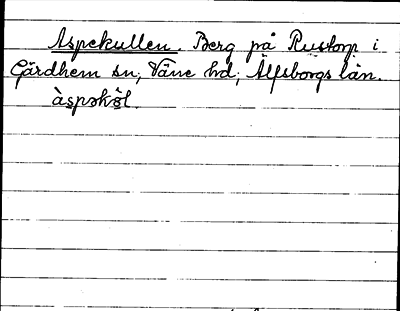 Aspekullen. Berg på Rustorp i
Gärdhem sn, Väne hd, Älfsborgs län.
àspəkə̀l.